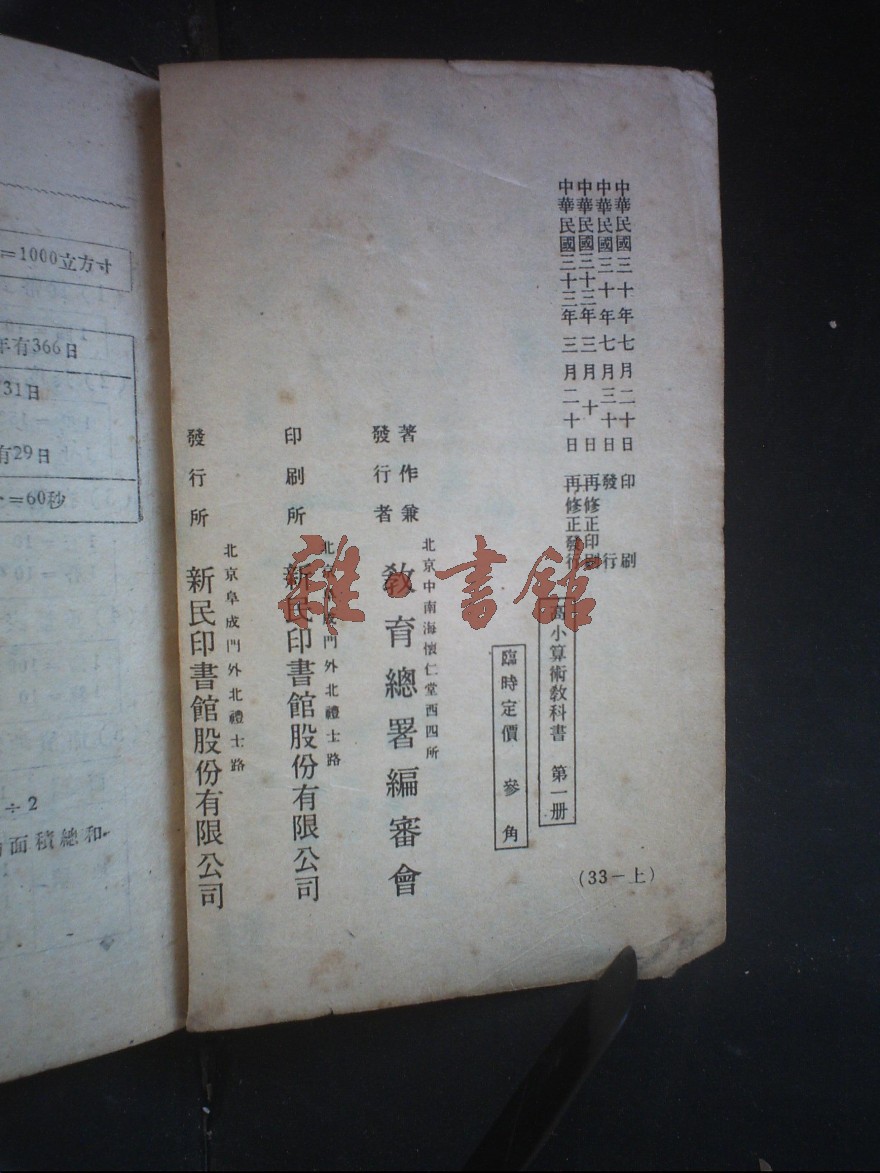 中華民國三十年七月二十日 印刷
中華民國三十年七月三十日 發行
中華民國三十三年三月十日 再修正印刷
中華民國三十三年三月二十日 再修正發行
高小算術教科書 第一册
臨時定價 參角
著作兼
發行者
北京中南海懷仁堂西四所
教育總署編審會
印刷所
北京阜成門外北禮士路
新民印書館股份有限公司
發行所
北京阜成門外北禮士路
新民印書館股份有限公司
(33－上)
雜·書館
=1000立方寸
年有366日
31日
有29日
=60秒
÷2
面積總和